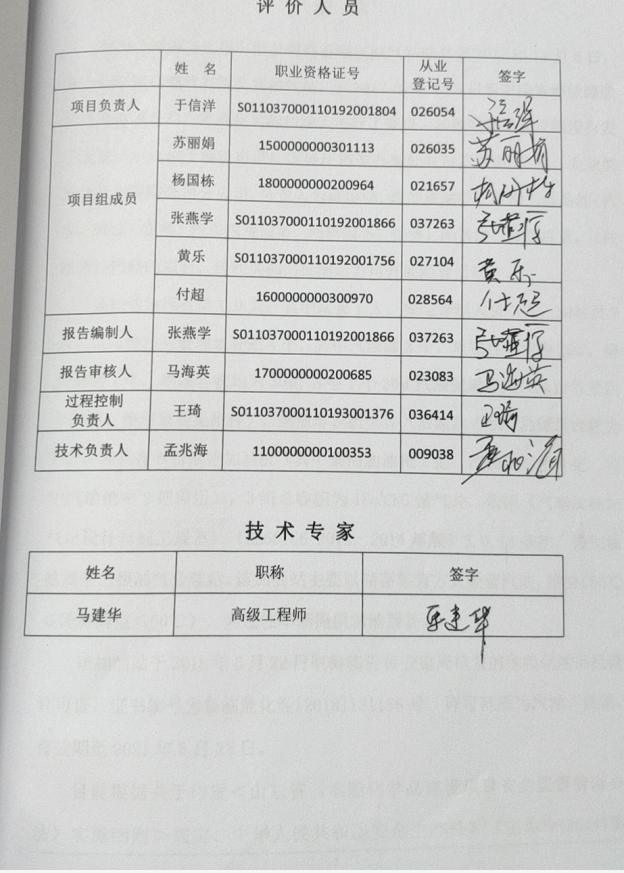 评价人员
姓 名 职业资格证号 从业登记号 签字
项目负责人 于信洋 S011037000110192001804 026054 于信洋
项目组成员 苏丽娟 1500000000301113 026035 苏丽娟
杨国栋 1800000000200964 021657 杨国栋
张燕学 S011037000110192001866 037263 张燕学
黄乐 S011037000110192001756 027104 黄乐
付超 1600000000300970 028564 付超
报告编制人 张燕学 S011037000110192001866 037263 张燕学
报告审核人 马海英 1700000000200685 023083 马海英
过程控制负责人 王琦 S011037000110193001376 036414 王琦
技术负责人 孟兆海 1100000000100353 009038 孟兆海
技术专家
姓名 职称 签字
马建华 高级工程师 马建华